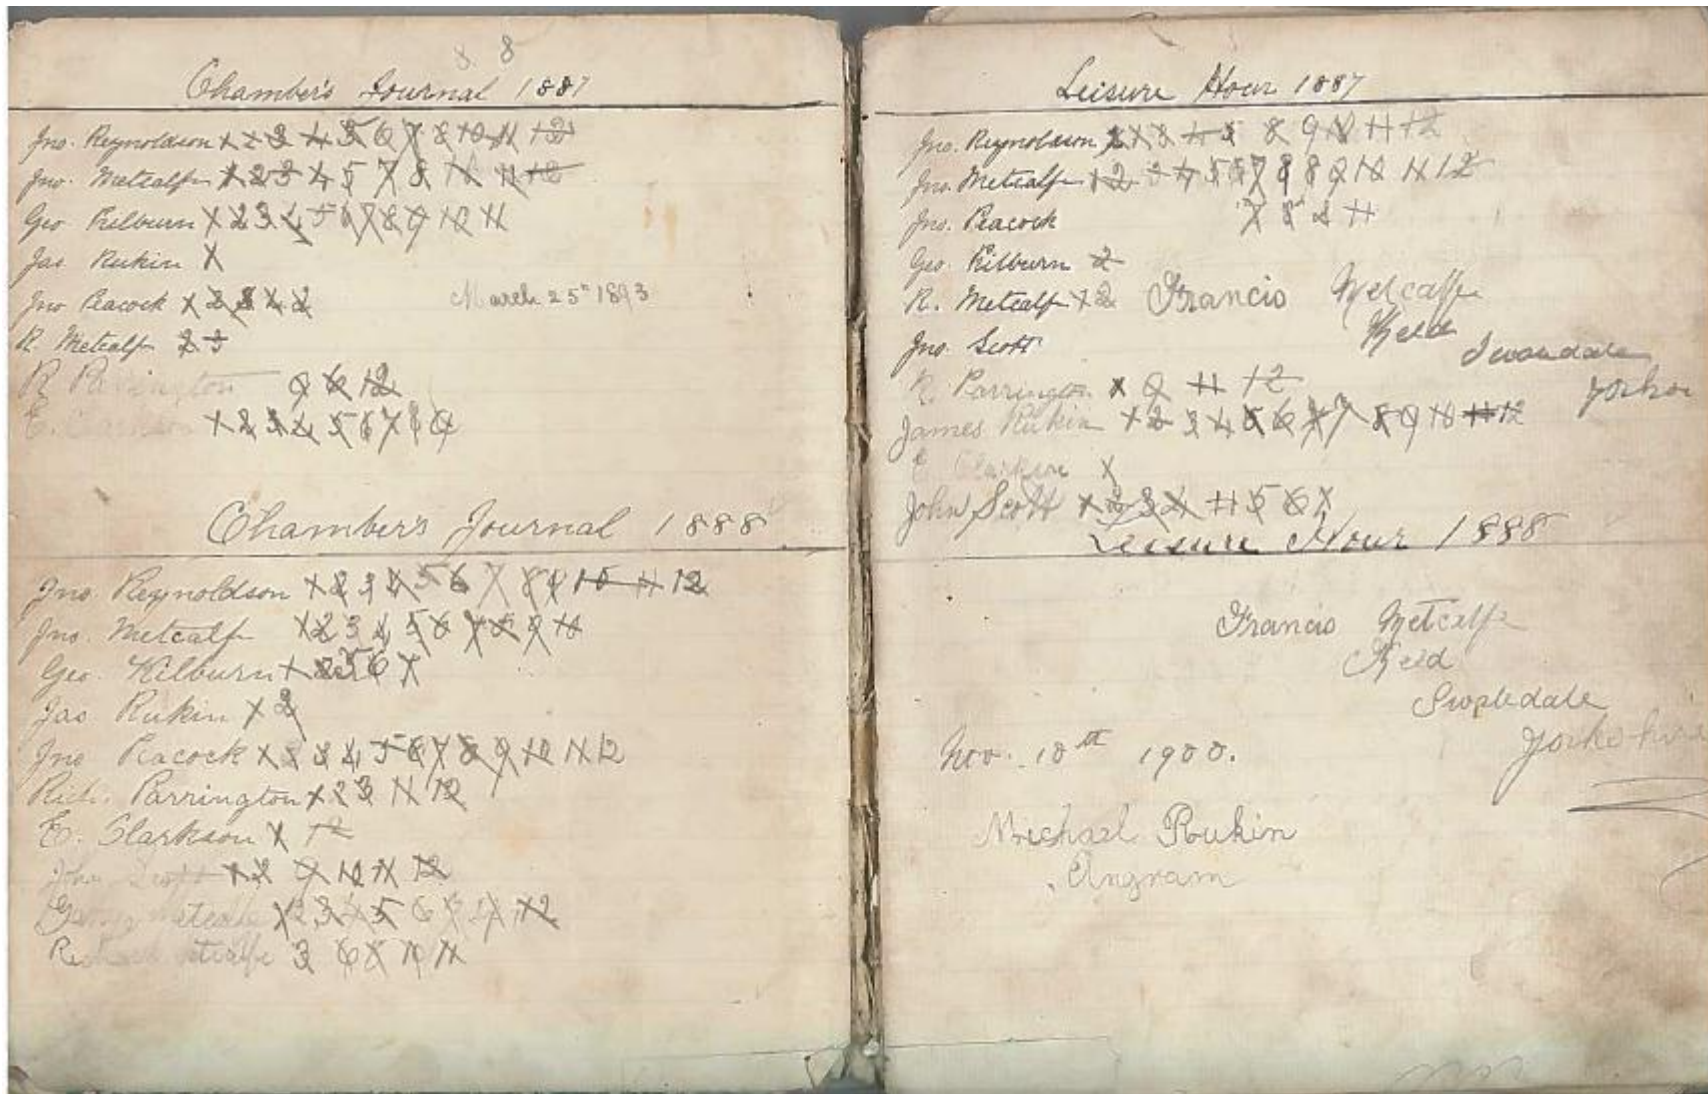 8 8
Chamber's Journal 1887
Jno. Reynoldson 1 2 3 4 5 6 7 8 10 11 12
Jno. Metcalfe 1 2 3 4 5 7 8 10 11 12
Geo Kilburn 1 2 3 4 5 6 7 8 9 10 11
Jas Rukin 1
Jno Peacock 1 2 3 4 2
March 25th 1893
R. Metcalfe 2 3
R Parrington 9 12
E. Clarkson 1 2 3 4 5 6 7 8 9
Chamber's Journal 1888
Jno. Reynoldson 1 2 3 4 5 6 7 8 9 10 11 12
Jno. Metcalfe 1 2 3 4 5 6 7 8 9 11
Geo. Kilburn 1 5 6
Jas Rukin 1 2
Jno Peacock 1 2 3 4 5 6 7 8 9 10 11 12
Rich. Parrington 1 2 3 11 12
E. Clarkson 1 12
John Scott 1 2 9 10 11 12
Metcalfe 1 2 3 4 5 6 12
Richard Metcalfe 3 6 8 10 11
Leisure Hour 1887
Jno. Reynoldson 3 4 5 8 9 10 11 12
Jno. Metcalfe 1 2 3 4 5 6 7 8 8 9 10 11 12
Jno. Peacock 7 8 11
Geo. Kilburn 2
R. Metcalfe 1 2 Francis Metcalfe
Keld
Jno. Scott
Swaledale
R. Parrington 9 11 12
James Rukin 1 2 3 4 5 6 7 8 9 10 11 12
E Clarkson 1
John Scott 1 2 3 4 5 6
Leisure Hour 1888
Francis Metcalfe
Keld
Swaledale
Yorkshire
Nov. 10th 1900.
Michael Rukin
Angram